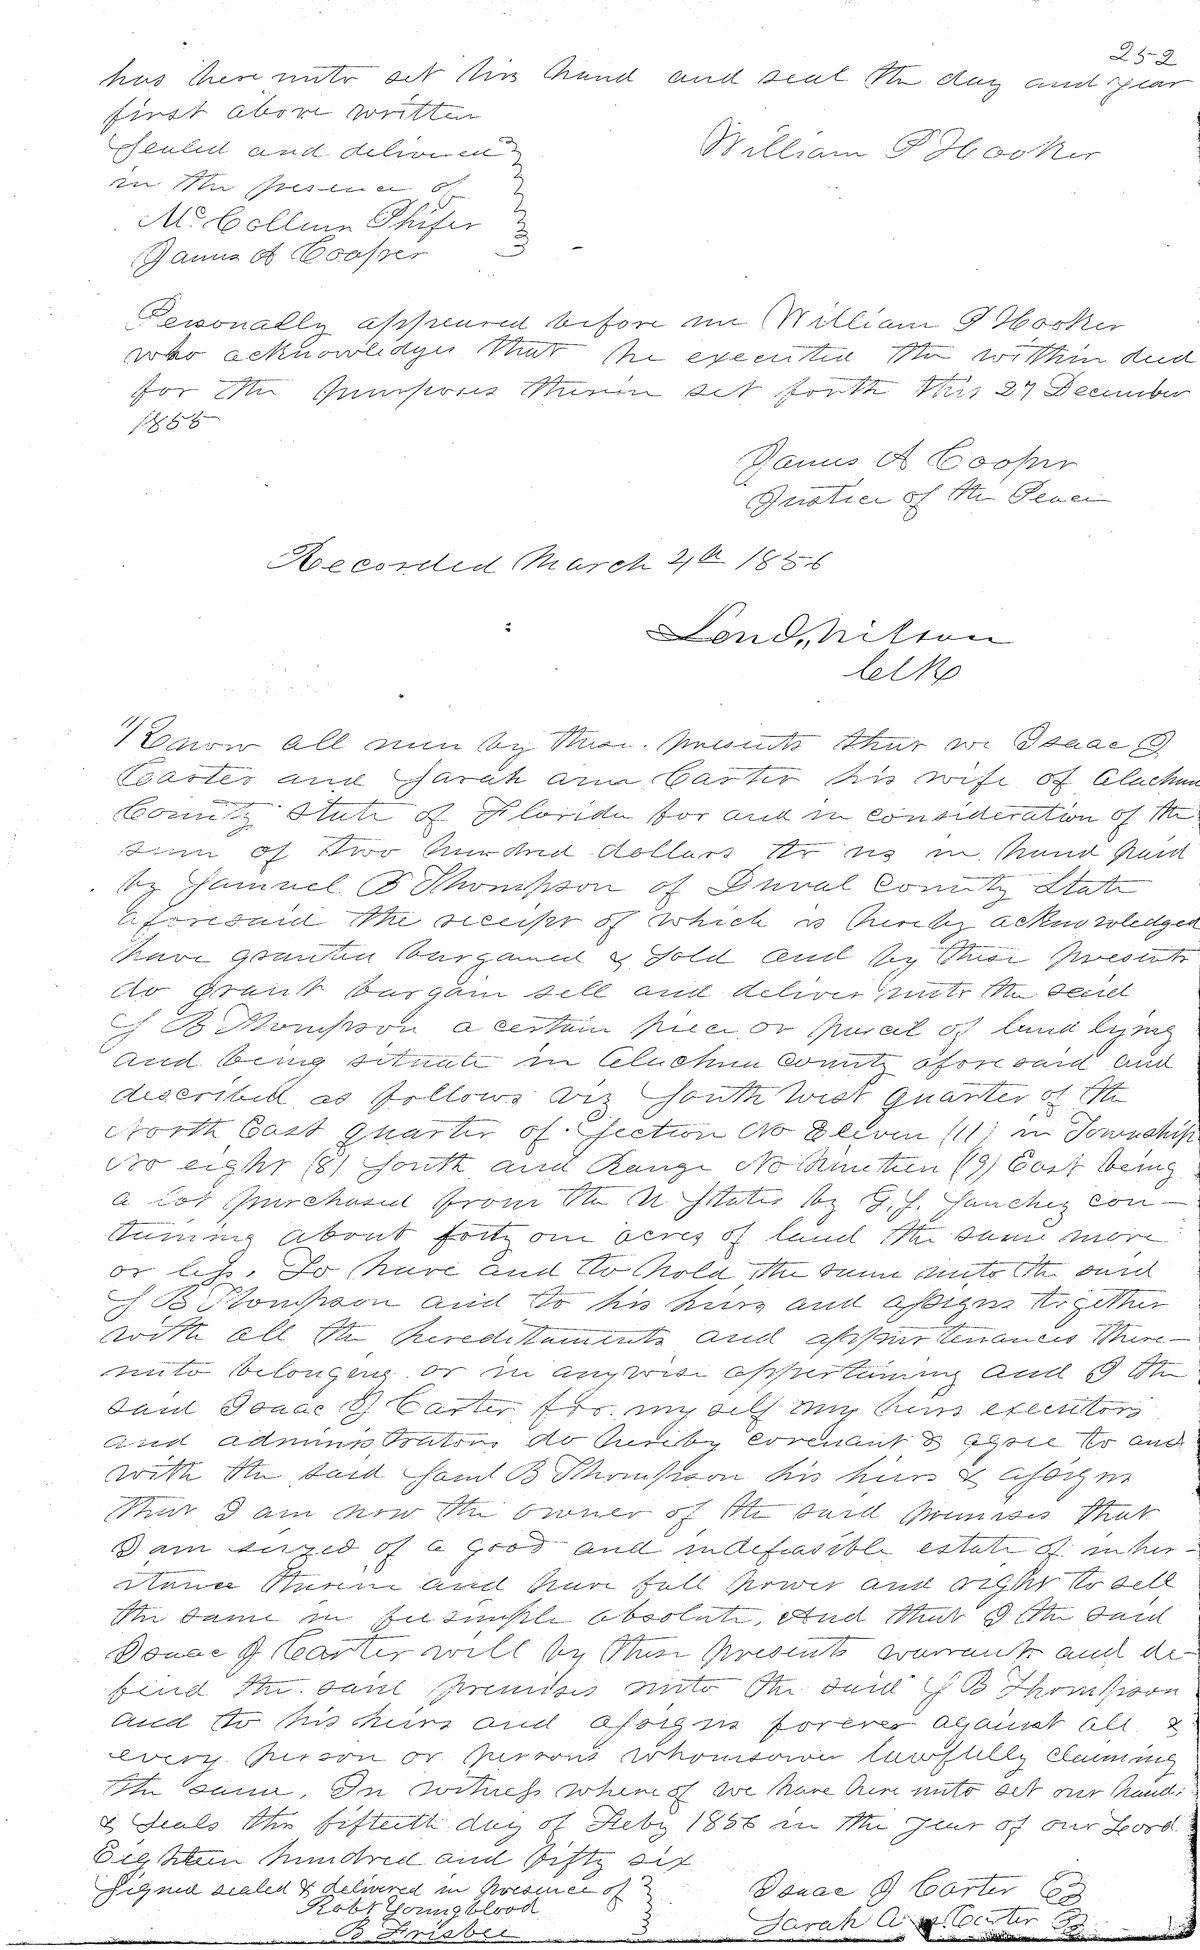 252
has here unto set his hand and seal the day and year
first above written
Sealed and delivered
William P Hooker
in the presence of
McCollum Phifer
James A Cooper
Personally appeared before me William P Hooker
who acknowledges that he executed the within deed
for the purposes therein set forth this 27 December
1855
James A Cooper
Justice of the Peace
Recorded March 4th 1856
Clk
Know all men by these presents that we Isaac J
Carter and Sarah ann Carter his wife of Alachua
County State of Florida for and in consideration of the
sum of two hundred dollars to us in hand paid
by Samuel B Thompson of Duval County State
aforesaid the receipt of which is hereby acknowledged
have granted bargained & sold and by these presents
do grant bargain sell and deliver unto the said
S B Thompson a certain piece or parcel of land lying
and being situate in Alachua County aforesaid and
described as follows viz South West quarter of the
North East quarter of Section No Eleven (11) in Township
No eight (8) South and Range No Nineteen (19) East being
a lot purchased from the U States by G. J. Sanchez con-
taining about forty one acres of land the same more
or less. To have and to hold the same unto the said
S B Thompson and to his heirs and assigns together
with all the hereditaments and appurtenances there-
unto belonging or in anywise appertaining and I the
said Isaac J Carter for myself my heirs executors
and administrators do hereby covenant & agree to and
with the said Saml B Thompson his heirs & assigns
that I am now the owner of the said premises that
I am seized of a good and indefeasible estate of inher-
itance therein and have full power and right to sell
the same in fee simple absolute. And that I the said
Isaac J Carter will by these presents warrant and de-
fend the said premises unto the said S B Thompson
and to his heirs and assigns forever against all &
every person or persons whomsoever lawfully claiming
the same. In witness where of we have here unto set our hands
& Seals this fifteenth day of Feby 1856 in the year of our Lord
Eighteen hundred and fifty six
Signed sealed & delivered in presence of
Isaac J Carter
Robt Youngblood
Sarah A Carter
B Frisbee